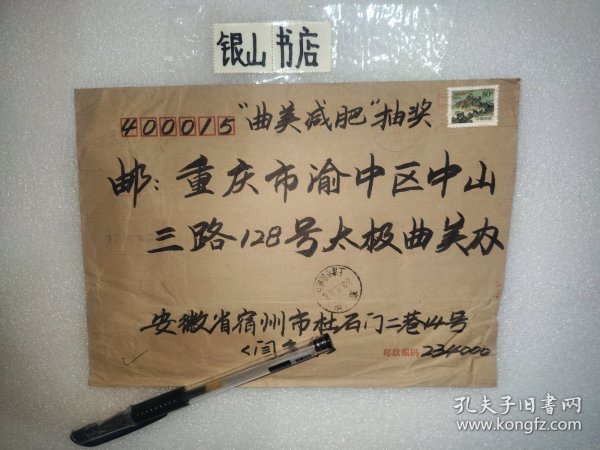 银山书店
400015 "曲美减肥"抽奖
邮：重庆市渝中区中山
三路128号太极曲美办
安徽省宿州市杜石门二巷14号
邮政编码 234000
孔夫子旧书网
www.kongfz.com